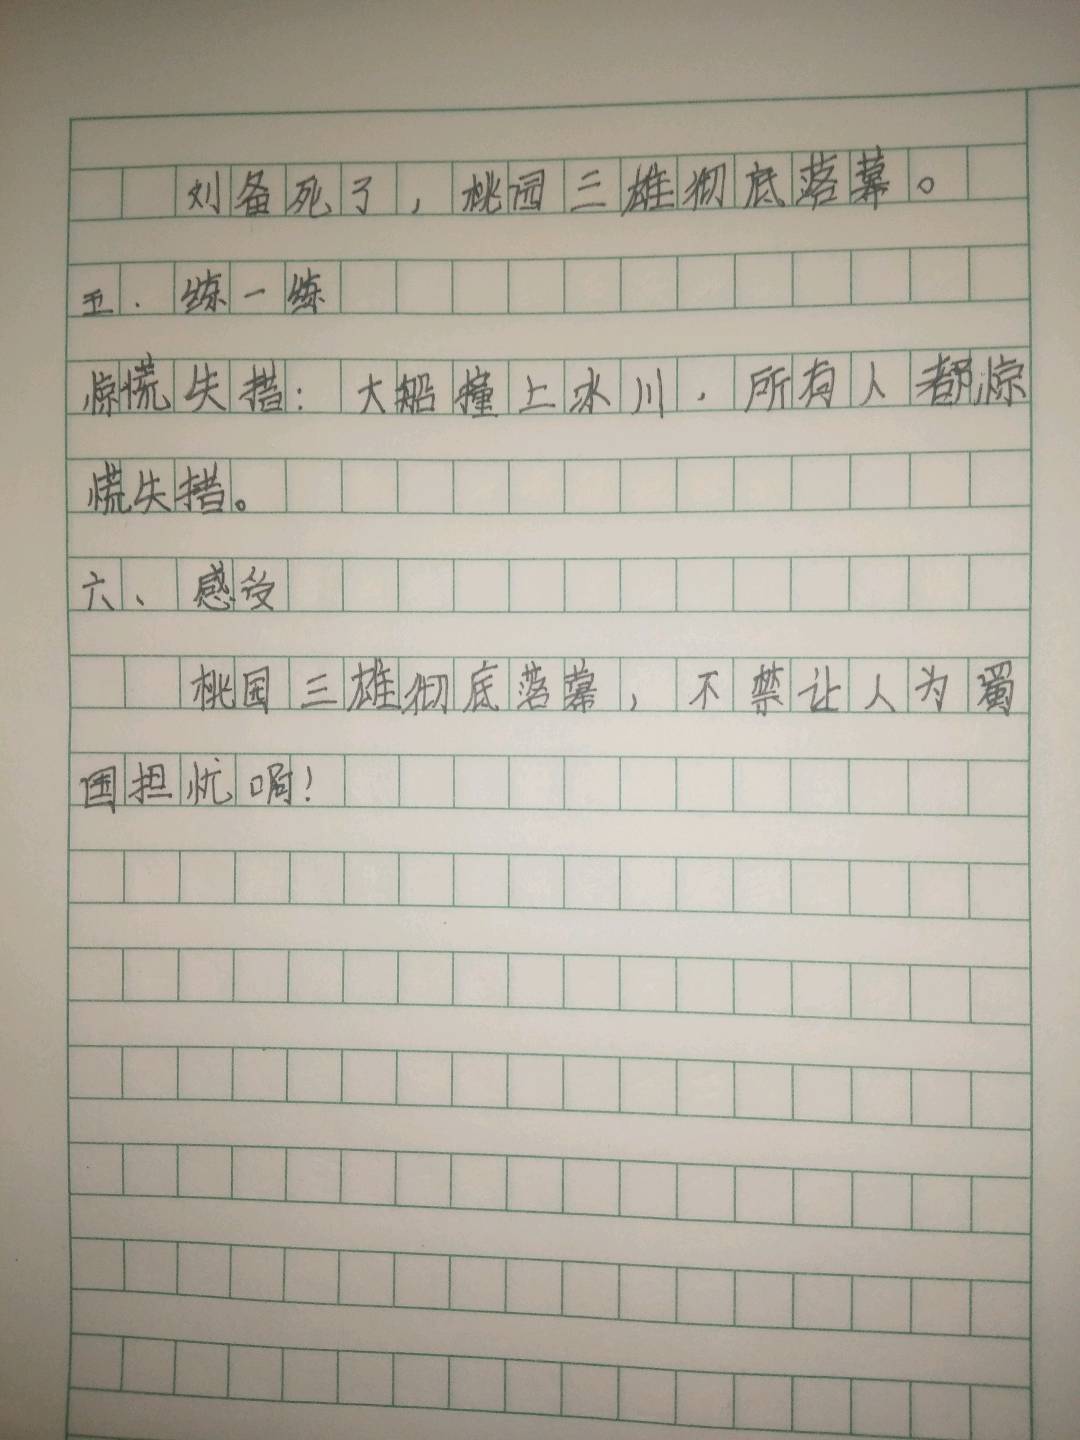 刘备死了，桃园三雄彻底落幕。
五．练一练
惊慌失措：大船撞上冰川．所有人都惊
慌失措。
六、感受
桃园三雄彻底落幕，不禁让人为蜀
国担忧啊！